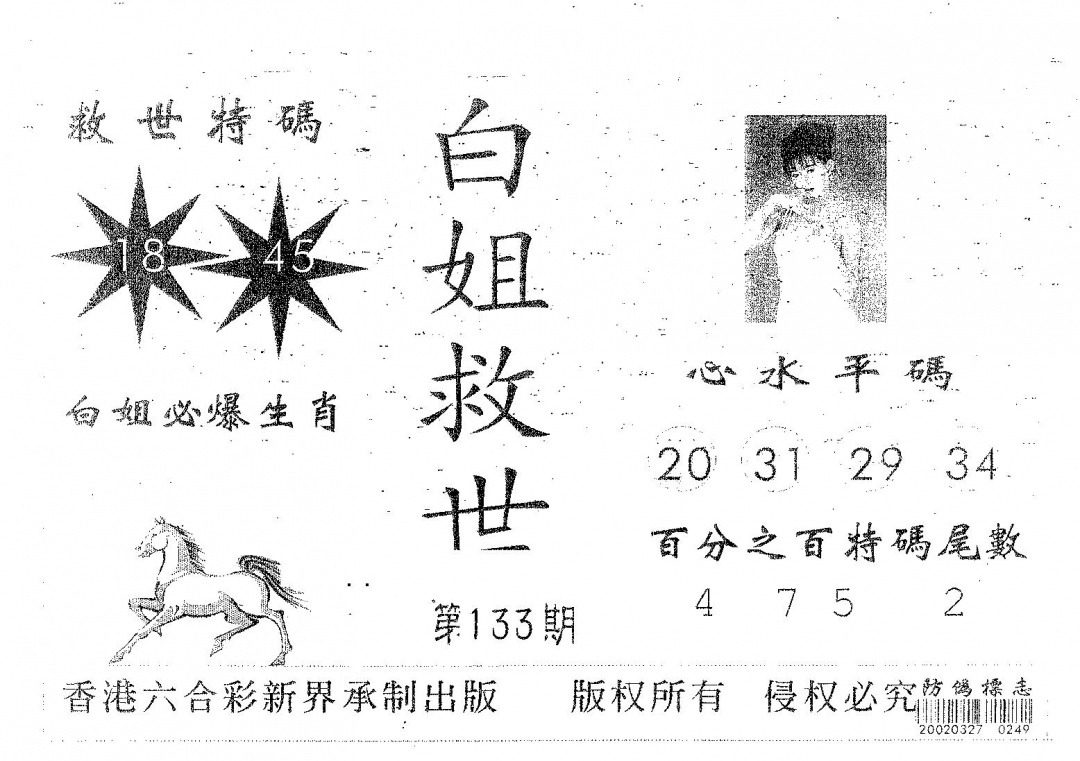 救世特碼
18 45
白姐必爆生肖
白姐救世
第133期
心水平碼
20 31 29 34
百分之百特碼尾數
4 7 5 2
香港六合彩新界承制出版 版权所有 侵权必究
防偽標志
20020327 0249